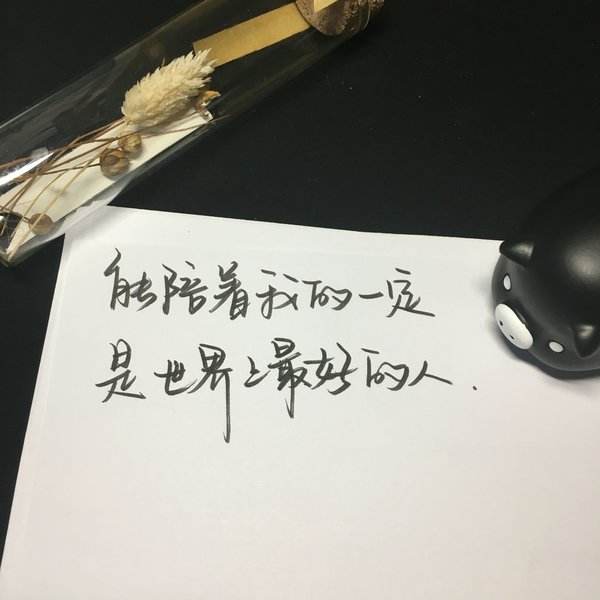 能陪着我的一定
是世界上最好的人.